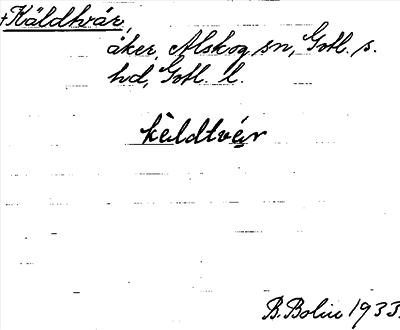 +Käldtvár,
åker, Alskog sn, Gotl. s.
hd, Gotl. l.
kèldtvér
B. Bolin 1933.